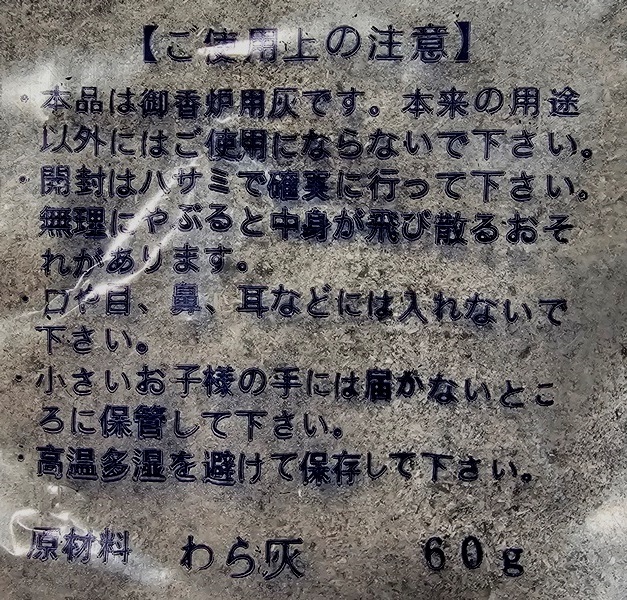 【ご使用上の注意】
・本品は御香炉用灰です。本来の用途
以外にはご使用にならないで下さい。
・開封はハサミで確実に行って下さい。
無理にやぶると中身が飛び散るおそ
れがあります。
・口や目、鼻、耳などには入れないで
下さい。
・小さいお子様の手には届かないとこ
ろに保管して下さい。
・高温多湿を避けて保存して下さい。
原材料 わら灰 60g